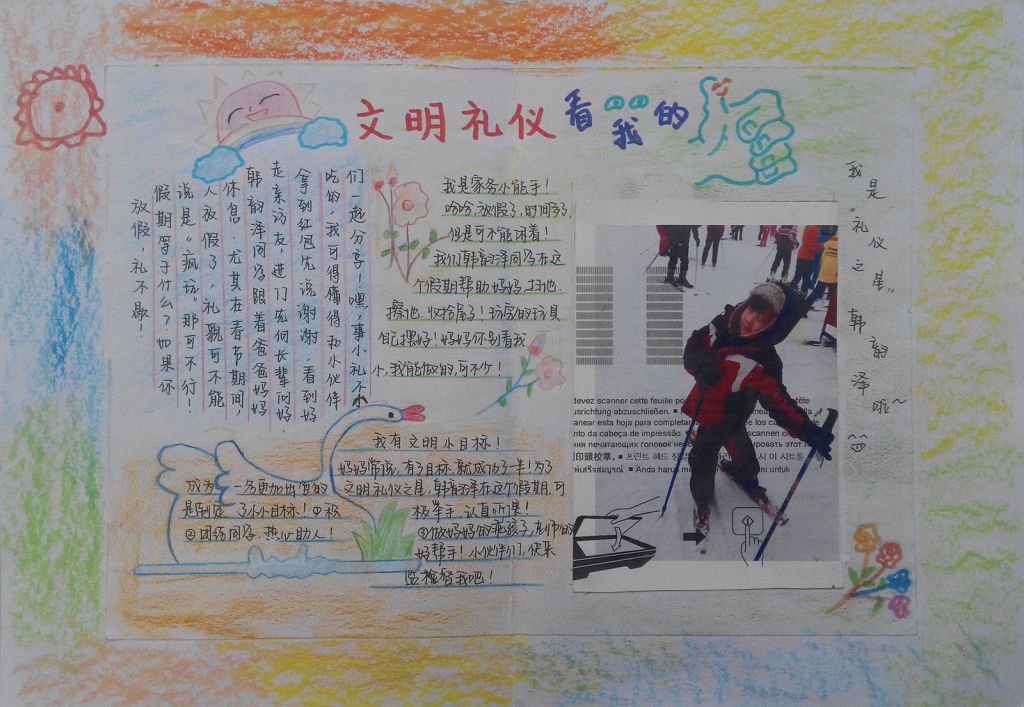 文明礼仪看我的
放假,礼不歇!
假期等于什么?如果你
说是“疯玩”那可不行!
人放假了,礼貌可不能
休息.尤其在春节期间,
韩韵泽同学跟着爸爸妈妈
走亲访友,进门先向长辈问好.
拿到红包先说谢谢.看到好
吃的,我可得懂得和小伙伴
们一起分享!嘿,事小礼不小
我是家务小能手!
哈哈,放假了,时间多了,
但是可不能闲着!
我们韩韵泽同学在这
个假期帮助妈妈扫地.
擦地.收拾屋子!玩完的玩具
自己摆好!妈妈你别看我
小,我能做的,可不少!
我有文明小目标!
妈妈常说,有了目标,就成功了一半!为了
成为一名更加出色的文明礼仪之星,韩韵泽在这个假期,可
是制定了小小目标!①积极举手.认真听课!
②团结同学.热心助人!③做妈妈的乖孩子,老师的
好帮手!小伙伴们,快来
监督我吧!
我是“礼仪之星”韩韵泽啦~
devez scanner cette feuille pour tête
usrichtung abzuschließen. ■
anear esta hoja para completar de los ca
nto da cabeça de impressão. ■ scannen o
ия печатающих головок необ ировать этот
印頭校準。 ■ 프린트 헤드 정 시 이 시트를
■ Anda harus me ni untuk